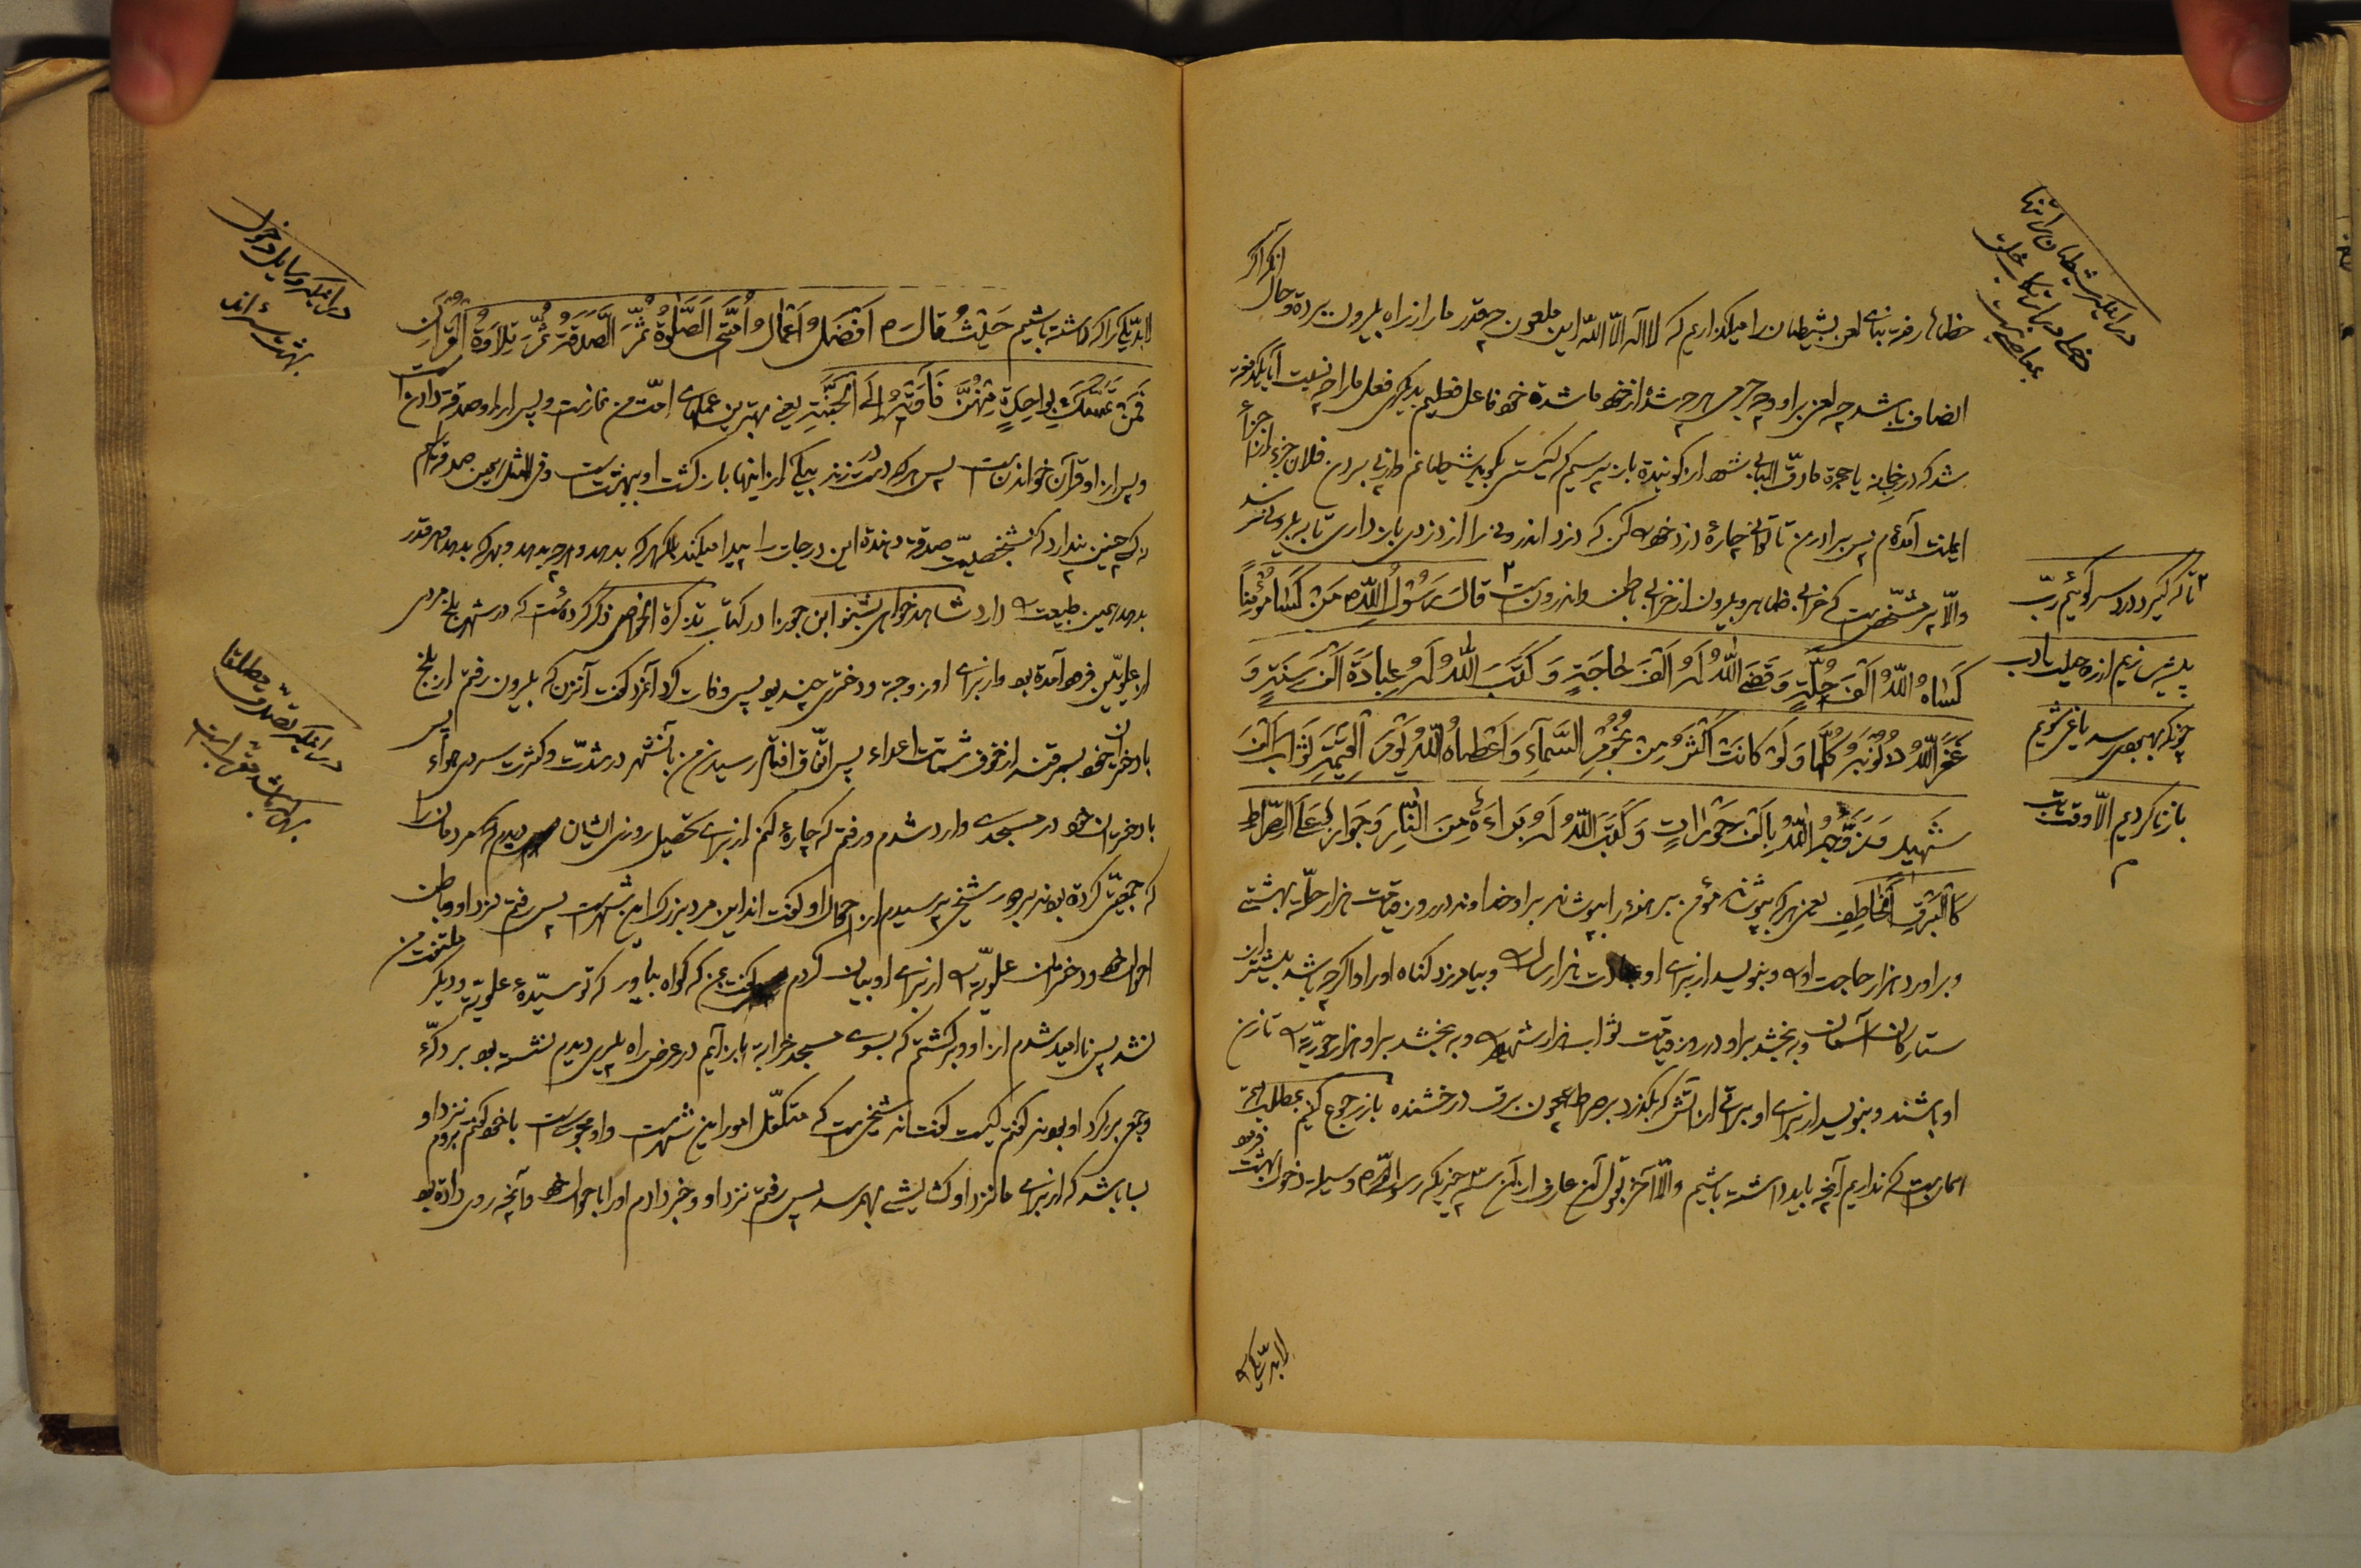 در اینکه شیطان را تنها
دخلی در ارتکاب خلق
بمعاصی نیست
خطائی رفت بنای لعن بشیطان را میگذاریم که لا اله الّا اللّه این ملعون چقدر ما را از راه بیرون برده و حال آنکه اگر
انصاف باشد چه لعن بر او و چه جرمی هر چه شد از خود ما شده خود فاعل فعلیم بدیگری فعل ما را چه نسبت آیا یکدفعه
شد که در خانه یا حجره مادقّ الباب شود از کوبنده باز پرسیم که کیستی بگوید شیطانم از برای بردن فلان جزء از اجزاء
ایمانت آمده‌ام پس برادر من تا توانی چارهٔ دزد خود کن که دزد اندرونی را از دزدی باز داری تا به بیرونی رسد
والّا پر مشخّص است که خرابی ظاهر و بیرون از خرابی باطن و اندرون است ۲ قال رسول اللّه ص من کسا مؤمناً
کساه اللّه الف حلّة و قضی اللّه له الف حاجة و کتب اللّه له عبادة الف سنة و
غفر اللّه ذنوبه کلّها و لو کانت اکثر من نجوم السّماء و اعطاه اللّه یوم القیمة ثواب الف
شهید و زوّجه اللّه بالف حورات و کتب اللّه له براءة من النّار و جواز علی الصّراط
کالبرق الخاطف یعنی هر که بپوشاند مؤمن برهنهٔ را بپوشاند بر او خداوند در روز قیامت هزار حلّه بهشتی
و برآورد هزار حاجت او را و بنویسد از برای او عبادت هزار ساله و بیامرزد گناه او را و اگر چه باشد بیشتر از
ستارگان آسمان و به بخشد بر او در روز قیامت ثواب هزار شهید و به بخشد بر او هزار حوریّه تا زن
او باشند و بنویسد از برای او براتی از آتش که بگذرد بر صراط همچون برق درخشنده باز رجوع کنیم بمطلب
اما ربیست که نداریم آنچه باید داشته باشیم والّا آخر بقول آن عارف از آن سه چیزیکه رسول اللّه ص وسیله دخول بهشت فرموده
تا که گیرد درد سر گوئیم ربّ
پلیس زنیم از ره جهل یا رب
چونکه بهبودی رسد یاغی شویم
باز نا کردیم الّا وقت تاب
لابد یکی را
لابدّ یکی را که داشته باشیم حدیث قال ص افضل اعمال امّتی الصّلوة ثمّ الصّدقة ثمّ تلاوة القرآن
فمن تمسّک بواحدة منهنّ فاقبله الی الجنّة یعنی بهترین عملهای امّت من نماز است و پس از او صدقه دادن است
و پس از او قرآن خواندن است پس هر که دست زند بیکی از اینها باز گشت او بهشت است و فی المثل همین صدقه را هم
نه که چنین پندارد که بشخصیّت صدقه دهنده این درجات را پیدا میکند بلکه هر که بدهد و هر چه بدهد و بهر که بدهد هر قدر
بدهد همین طبیعت را دارد شاهد خواهی بشنو ابن جوزی در کتاب تذکرة الخواص ذکر کرده است که در شهر بلخ مردی
از علویّین فرود آمده بود و از برای او زوجه و دختری چند بود پس وفات کرد آنمرد گفت آنزن که بیرون رفتم از بلخ
با دختران خود بسمرقند از خوف شماتت اعداء پس اتّفاق افتاد رسیدن من بآنشهر در شدّت و کثرت سردی هواء پس
با دختران خود در مسجدی وارد شدم و رفتم که چارهٔ کنم از برای تحصیل روزی ایشان دیدم مردمان را
که جمعیّتی کرده بودند بر دور شیخی پرسیدم از احوال او گفتند این مرد بزرگ این شهر است پس رفتم نزد او و باطن
احوال خود و دختران علویّه را از برای او بیان کردم گفت بمن که گواه بیاور که تو سیّدهٔ علویّه و دیگر ملتفت من
نشد پس ناامید شدم از او و برگشتم که بسوی مسجد خرابه باز آیم در عرض راه پیری دیدم نشسته بود بر دکّه‌ء
و جمعی بر گرد او بودند گفتم کیست گفتند شیخی است که متکفّل امور این شهر است و او مجوسی است با خود گفتم بروم نزد او
بسا باشد که از برای ما نزد او گشایشی بهمرسد پس رفتم نزد او و خبر دادم او را باحوال خود و آنچه روی داده بود
در اینکه وسایل دخول
بهشت سه اند
در اینکه تصدّق مطلقا
بهر که باشد مقبول است